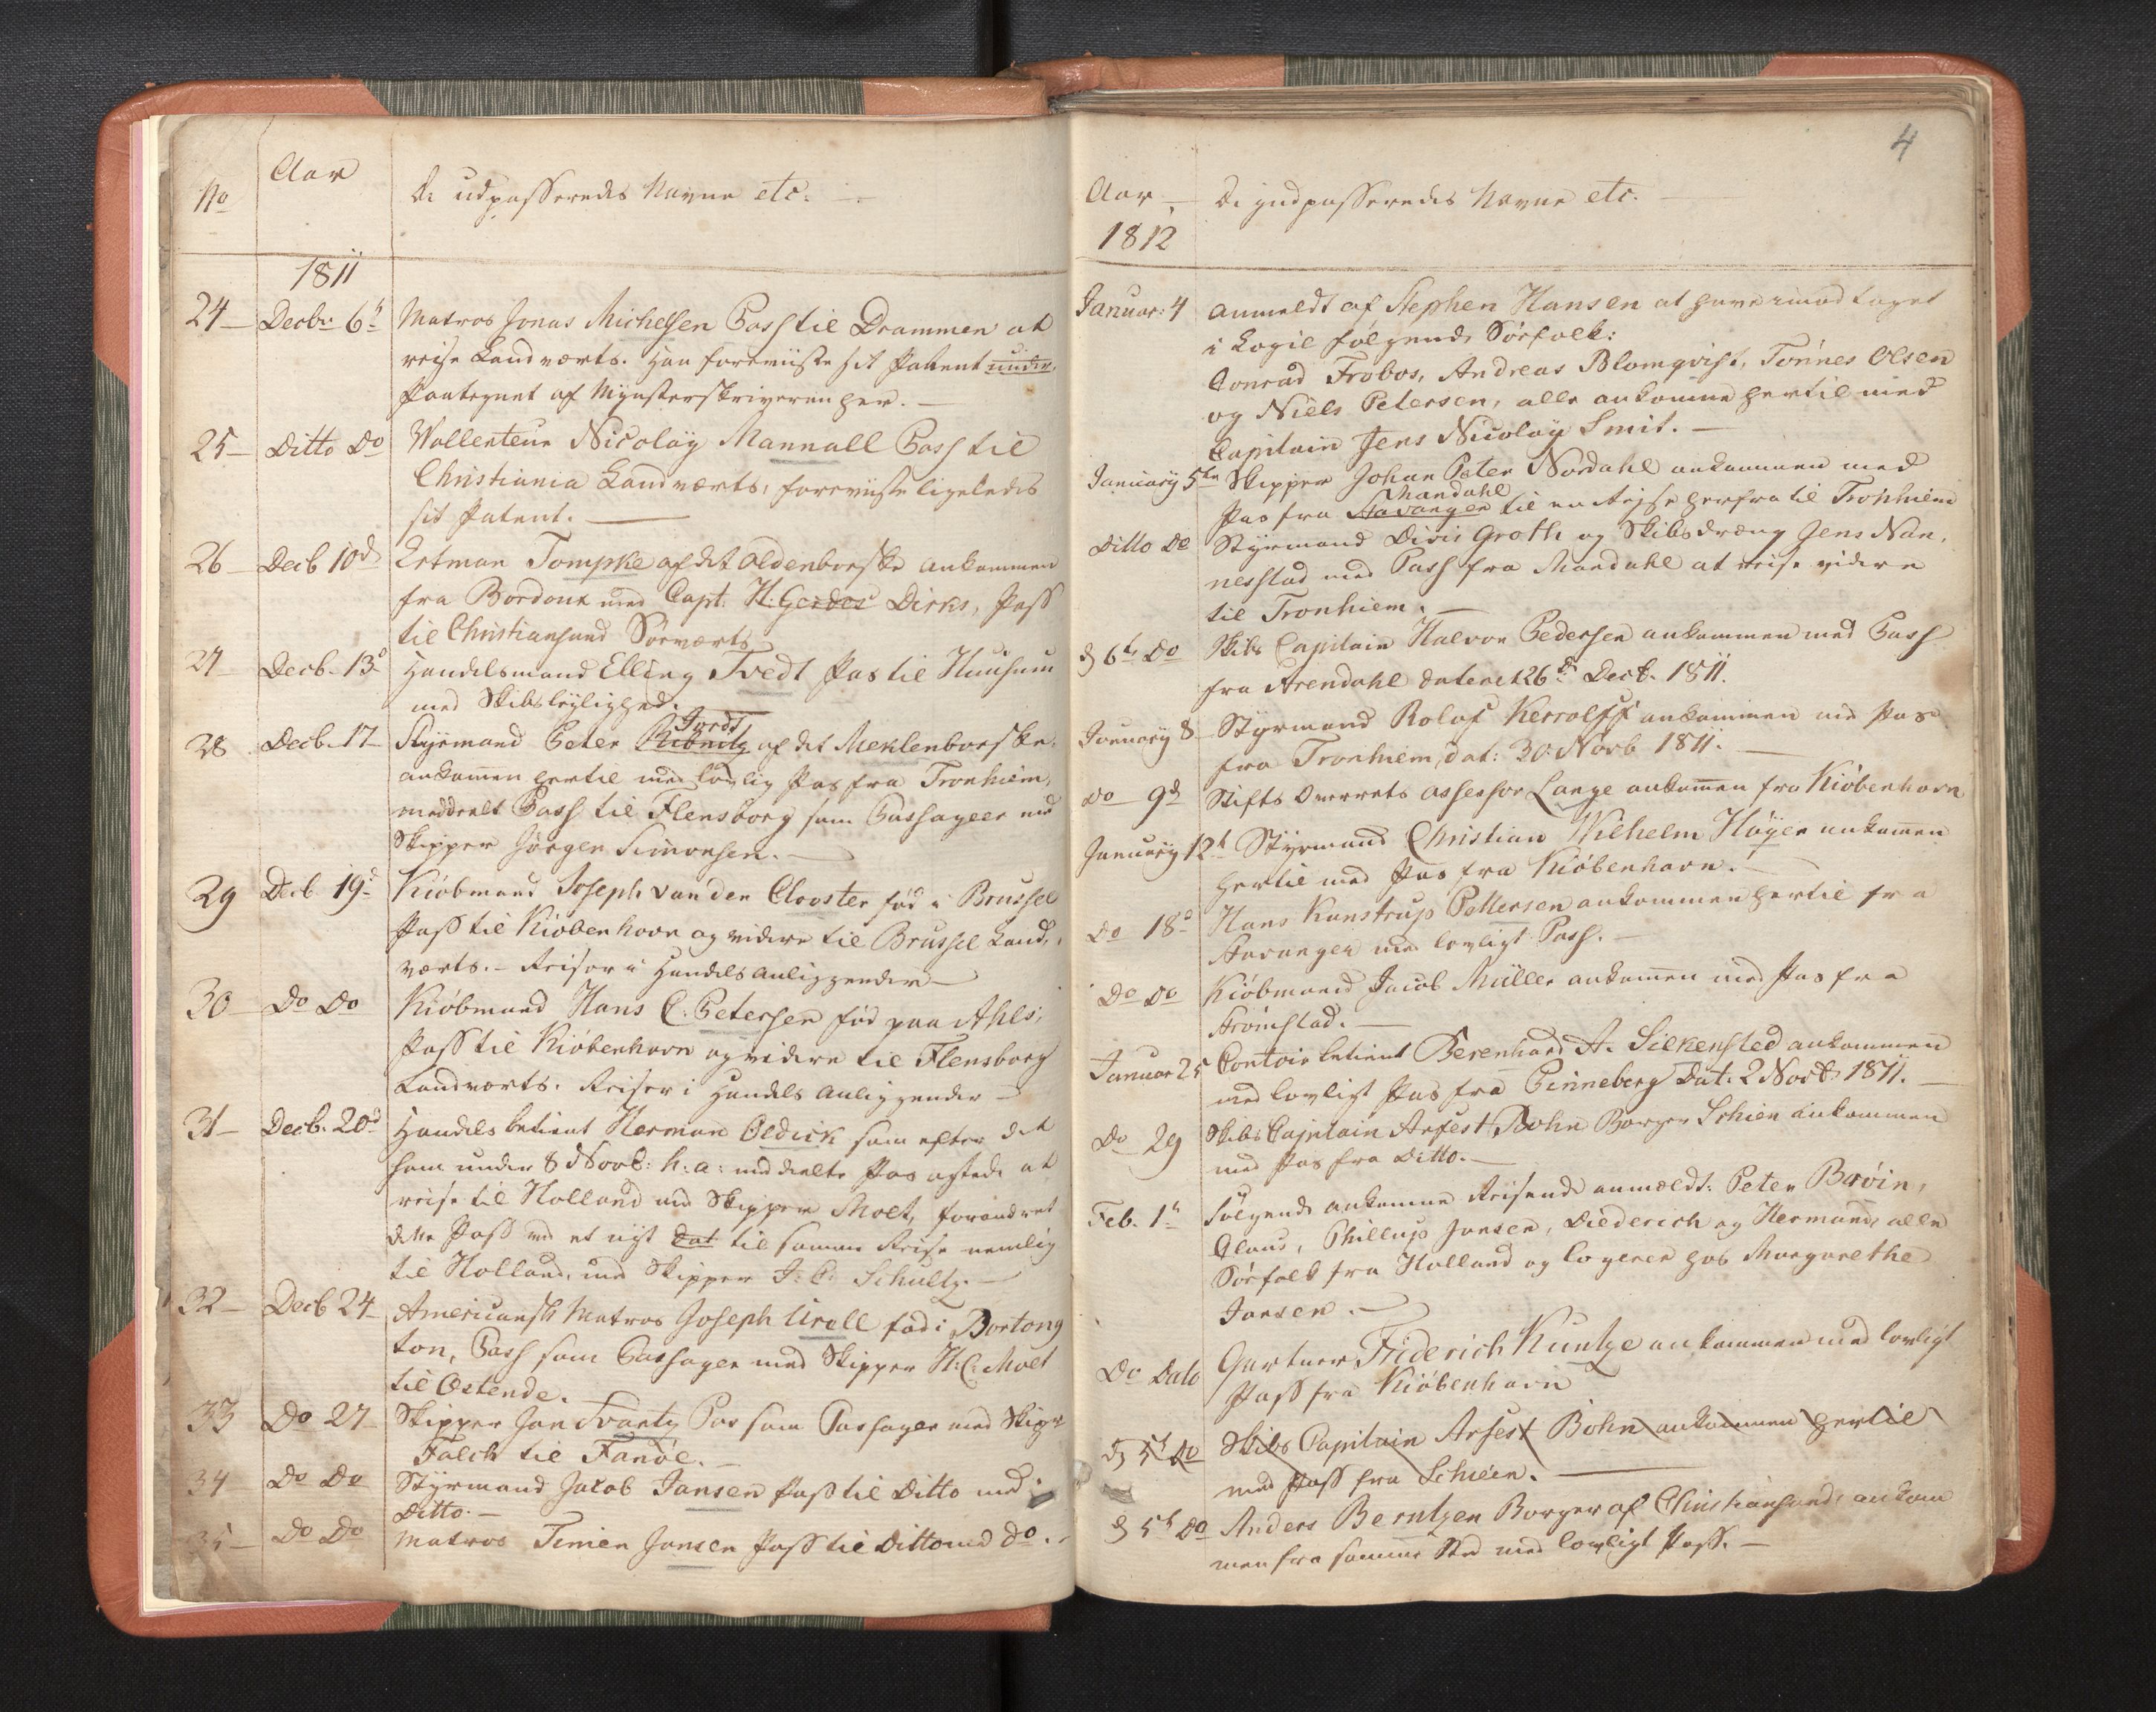 No
Aar
De udpasseredes Navne etc. —
1811
24 — Decbr 6t Matros Jonas Michelsen Pass til Drammen at
reise Landværts. Han foreviiste sit Patent under
paategnet af Mynsterskriveren her. —
25 — Ditto Do Vollenteur Nicolaÿ Mannall Pass til
Christiania Landværts, foreviiste ligeledes
sit Patent. —
26 — Decb 10d Ertman Tompke af det Oldenborske ankommen
fra Bordoux med Capt. H. Gerdes Dirks, Pass
til Christiansand Søeværts
27 — Decb. 13d Handelsmand Elling Tvedt Pas til Huusum
med Skibsleylighed.
Jords
28 Decb. 17 — Styrmand Peter Ribnitz af det Meklenborske,
ankommen hertil med lovlig Pas fra Tronhiem,
meddeelt Pass til Flensborg som Passageer med
Skipper Jörgen Simonsen. —
29 Decb 19d Kiöbmand Joseph van den Clooster fød i Brussel
Pass til Kiöbenhavn og videre til Brussel Land,
værts. — Reiser i Handels Anliggender —
30 — Do Do Kiöbmand Hans C. Petersen fød paa Ahls,
Pass til Kiöbenhavn og videre til Flensborg
Landværts. Reiser i Handels Anliggender —
31 — Decb. 20d Handelsbetient Herman Oldick som efter det
ham under 8 Novb: h: a: meddeelte Pas agtede at
reise til Holland med Skipper Molt, forandret
dette Pass med et nyt dat til samme Reise nemlig
til Holland, med Skipper J: C: Schultz. —
32 — Decb 24 — Americansk Matros Joseph Uroll fød i Bortong
ton, Pass som Passager med Skipper H: C: Molt
til Ostende.
33 Do 27 — Skipper Jan Svartz Pas som Passager med Skipr
Falch til Fanöe. —
34 Do Do Styrmand Jacob Jansen Pass til Ditto med
Ditto. —
35 — Do Do Matros Timen Jansen Pass til Ditto med Do. —
4
Aar — De Indpasseredes Navne etc. —
1812
Januar: 4 Anmeldt af Stephen Hansen at have imodtaget
i Logie følgende Söefolk:
Conrad Frobos, Andreas Blomqvist, Tönnes Olsen
og Niels Petersen, alle ankomne hertil med
Capitain Jens Nicolaÿ Smit. —
Januarÿ 5te Skipper Johan Peter Nordahl ankommen med
Mandahl
Pas fra Stavanger til en Rejse herfra til Tronhiem
Ditto Do Styrmand Divis Groth og Skibsdreng Jens Nan,
nesstad med Pass fra Mandahl at reise videre
til Tronhiem. —
d 6t Do Skibs Capitain Halvor Pedersen ankommen med Pass
fra Arendahl dateret 26de Decb. 1811.
Januarÿ 8 — Styrmand Rolof Kerrolff ankommen med Pas
fra Tronhiem, dat: 30 Novb 1811. —
Do — 9d Stifts Overrets Assessor Lange ankommen fra Kiöbenhavn
Januarÿ 12t Styrmand Christian Wilhelm Höyer ankommen
hertil med Pas fra Kiöbenhavn. —
Do 18d Hans Kunstrup Pettersen ankommen hertil fra
Stavanger med lovligt Pass. —
Do Do Kiöbmand Jacob Müller ankommen med Pas fra
Strömstad. —
Januar 25 Contoirbetient Berenhard A. Silkensted ankommen
med lovligt Pas fra Pinneberg Dat: 2 Novb 1811. —
Do 29 Skibs Capitain Anfest Bohn Borger Schien ankommen
med Pas fra Ditto. —
Feb. 1t Følgende ankomne Reisende anmeldt: Peter Bröin,
Claus, Phillup Jansen, Diederich og Hermand, alle
Söefolk fra Holland og logerer hos Margarethe
Jansen. —
Do Dato Gartner Friderich Kuntze ankommen med lovligt
Pass fra Kiöbenhavn
d 5t Do Skibs Capitain Anfest Bohn ankommen hertil
med Pass fra Schien. —
d 5t Do Anders Berntzen Borger af Christiansand, ankom
men fra samme Sted med lovligt Pass. —